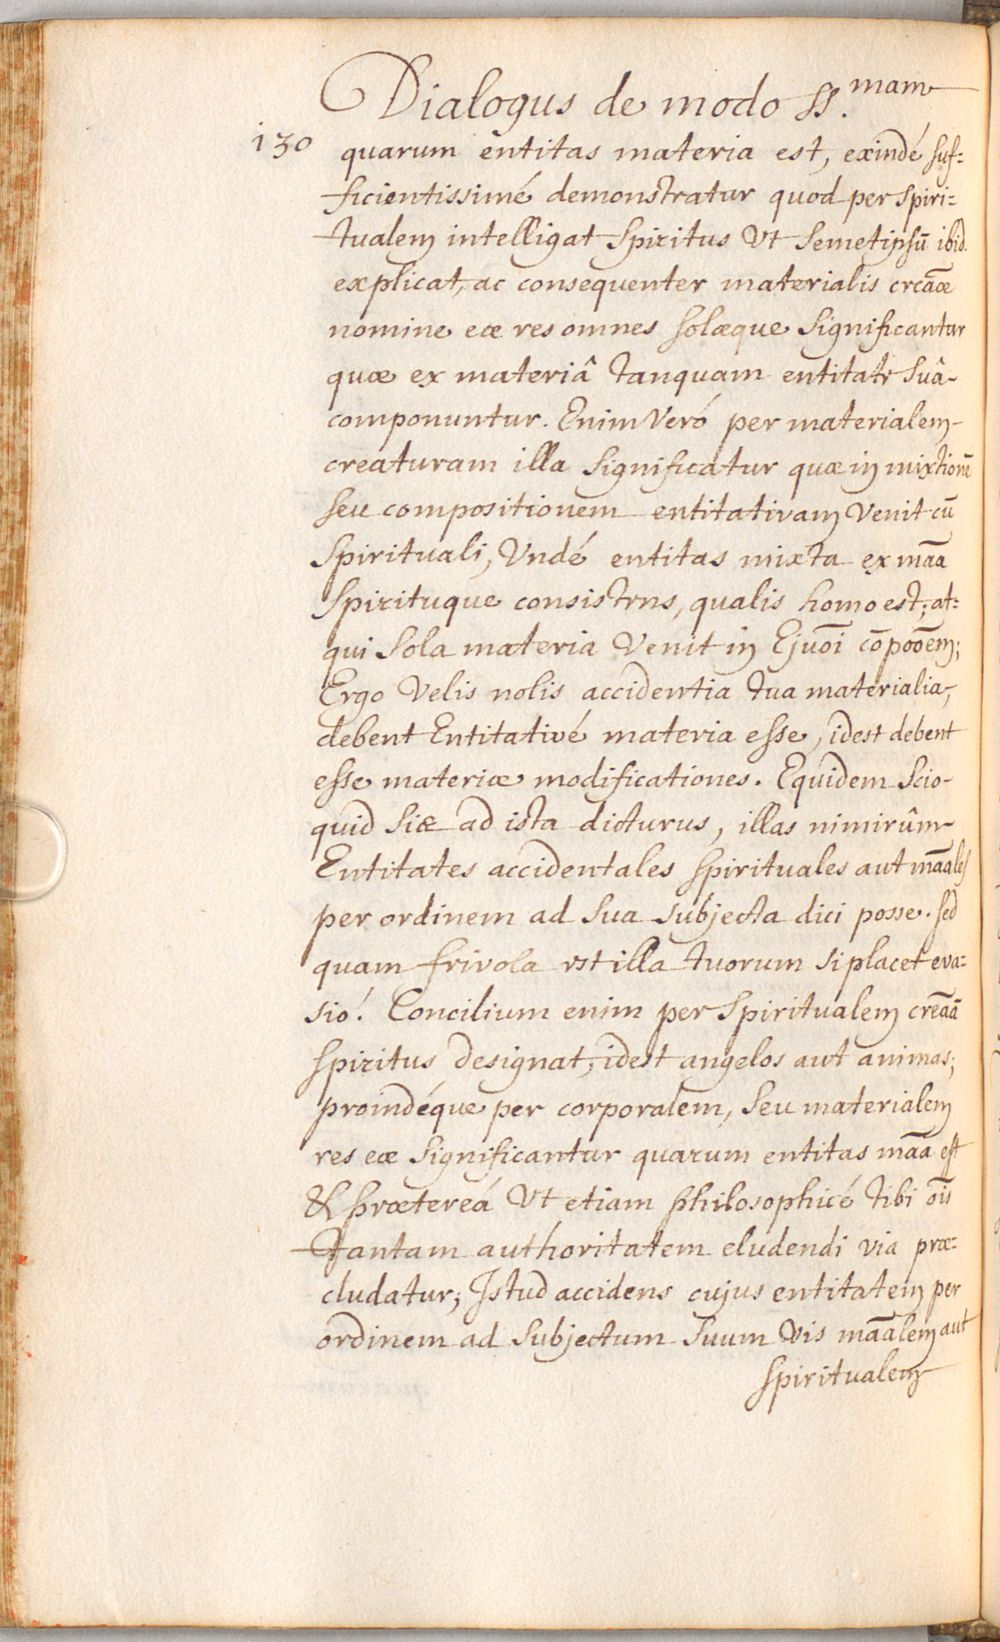 Dialogus de modo SS.mam
130
quarum entitas materia est, exindé suf=
ficientissimé demonstratur quod per spiri=
tualem intelligat Spiritus Vt Semetipsū ibid.
explicat, ac consequenter materialis crēaæ
nomine eæ res omnes solæque Significantur
quæ ex materiâ tanquam entitate Suâ
componuntur. Enim Veró per materialem
creaturam illa Significatur quæ in mixtionē
seu compositionem entitativam Venit cū
Spirituali, Vndé entitas mixta ex māa
Spirituque consistens, qualis homo est; at=
qui Sola materia Venit in Ejuōi cōpoōem;
Ergo Velis nolis accidentia tua materialia,
debent Entitativé materia esse, idest debent
esse materiæ modificationes. Equidem Scio
quid Siæ ad ista dicturus, illas nimirûm
Entitates accidentales spirituales aut māales
per ordinem ad Sua Subjecta dici posse. sed
quam frivola est illa tuorum si placet eva=
sió! Concilium enim per Spiritualem crēaā
Spiritus designat, idest angelos aut animas;
proindéque per corporalem, Seu materialem
res eæ Significantur quarum entitas māa est
& prætereá Vt etiam philosophicé tibi ōis
tantam authoritatem eludendi via præ=
cludatur; Istud accidens cujus entitatem per
ordinem ad Subjectum Suum Vis māalem aut
spiritualem